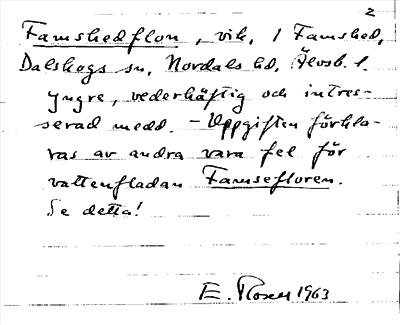 2
Famshedflon, vik, i Famshed,
Dalskogs sn, Nordals hd, Älvsb. l.
yngre, vederhäftig och intres-
serad medd. - Uppgiften förkla-
ras av andra vara fel för
vattenfladan Famsefloren.
Se detta!
E. Rosell 1963